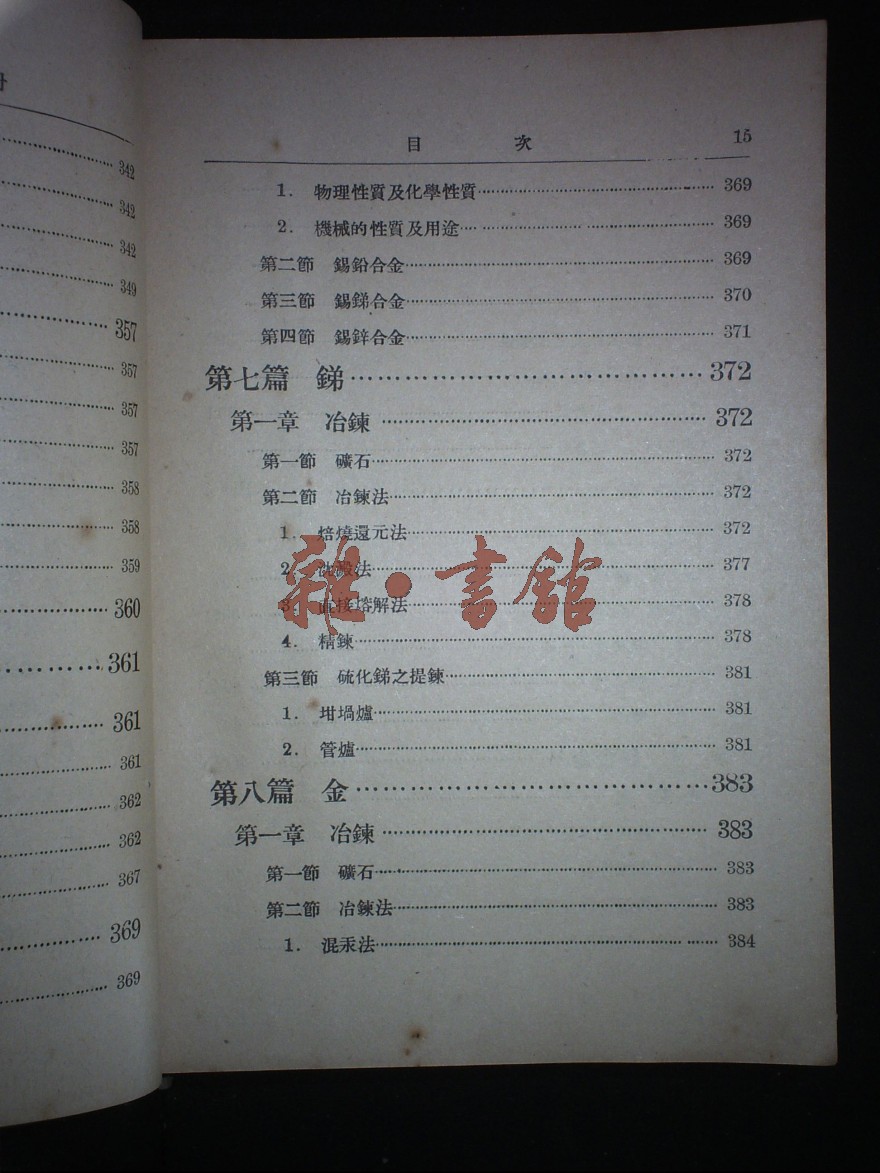 342
342
342
349
357
357
357
357
358
358
359
360
361
361
361
362
362
367
369
369
目 次 15
1. 物理性質及化學性質 369
2. 機械的性質及用途 369
第二節 錫鉛合金 369
第三節 錫銻合金 370
第四節 錫鋅合金 371
第七篇 銻 372
第一章 冶鍊 372
第一節 礦石 372
第二節 冶鍊法 372
1. 焙燒還元法 372
2. 法 377
3. 直接熔解法 378
4. 精鍊 378
第三節 硫化銻之提鍊 381
1. 坩堝爐 381
2. 管爐 381
第八篇 金 383
第一章 冶鍊 383
第一節 礦石 383
第二節 冶鍊法 383
1. 混汞法 384
雜·書館